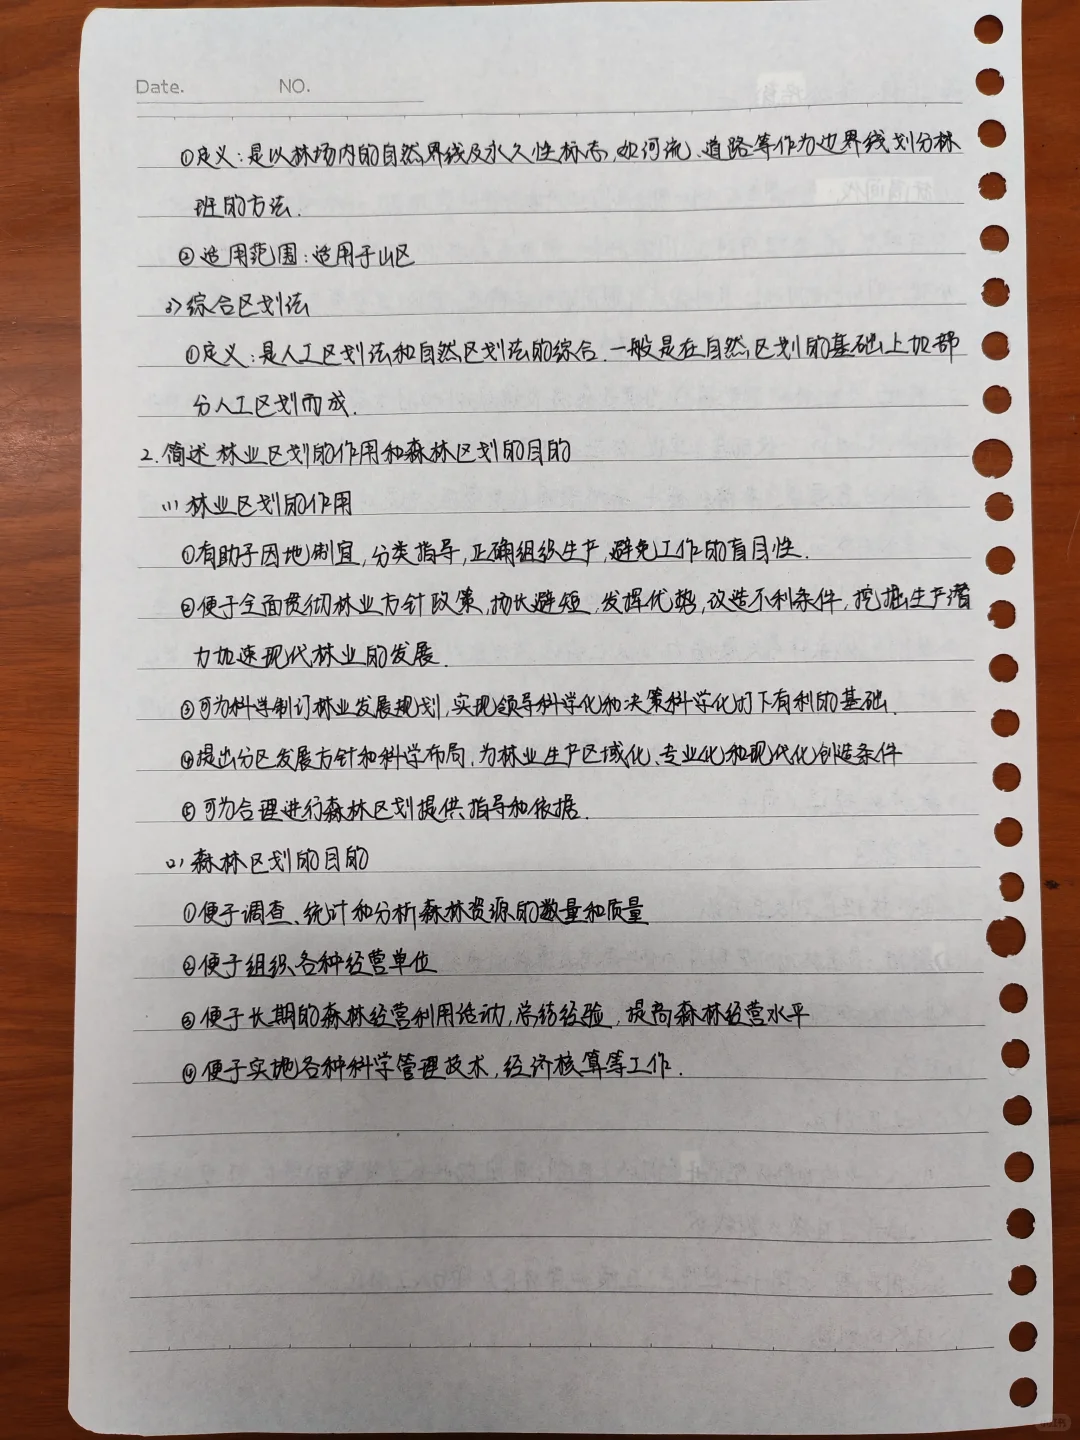 Date. NO.
①定义:是以林场内的自然界线及永久性标志,如河流、道路等作为边界线划分林
班的方法.
②适用范围:适用于山区
3)综合区划法
①定义:是人工区划法和自然区划法的综合.一般是在自然区划的基础上加部
分人工区划而成.
2.简述林业区划的作用和森林区划的目的
(1)林业区划的作用
①有助于因地制宜,分类指导,正确组织生产,避免工作的盲目性.
②便于全面贯彻林业方针政策,扬长避短,发挥优势,改造不利条件,挖掘生产潜
力加速现代林业的发展.
③可为科学制订林业发展规划,实现领导科学化和决策科学化打下有利的基础.
④提出分区发展方针和科学布局,为林业生产区域化、专业化和现代化创造条件
⑤可为合理进行森林区划提供指导和依据.
(2)森林区划的目的
①便于调查、统计和分析森林资源的数量和质量
②便于组织各种经营单位
③便于长期的森林经营利用活动,总结经验,提高森林经营水平
④便于实地各种科学管理技术,经济核算等工作.